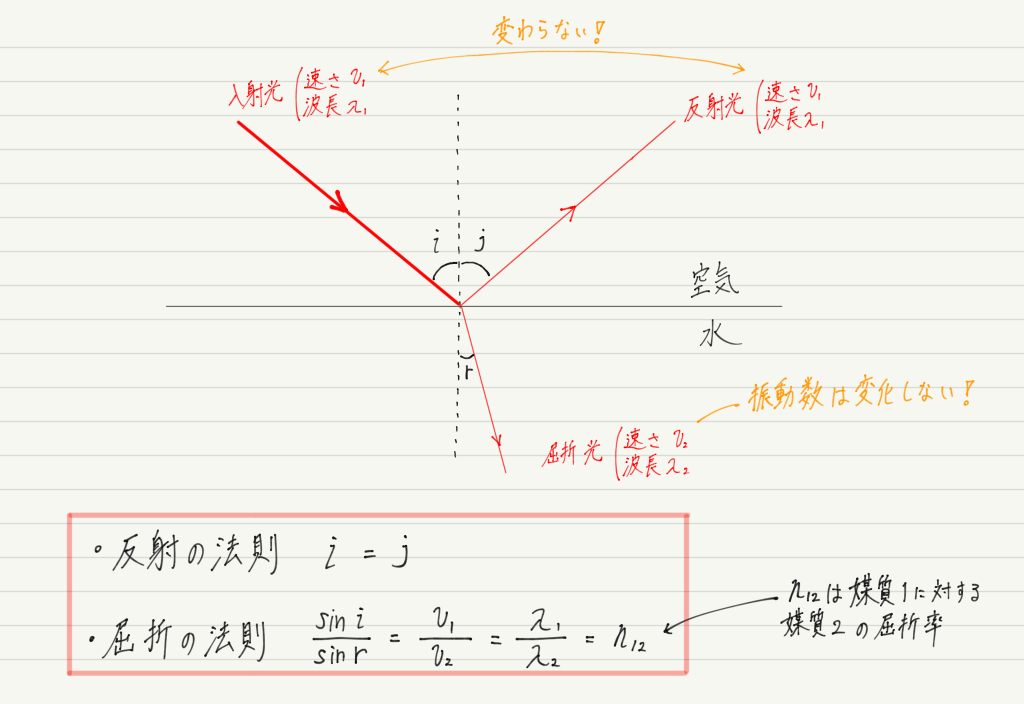 変わらない!
入射光 (速さ v₁
波長 λ₁
反射光 (速さ v₁
波長 λ₁
i j
空気
水
r
振動数は変化しない!
屈折光 (速さ v₂
波長 λ₂
・反射の法則 i = j
・屈折の法則 sin i / sin r = v₁ / v₂ = λ₁ / λ₂ = n₁₂
n₁₂は媒質1に対する
媒質2の屈折率